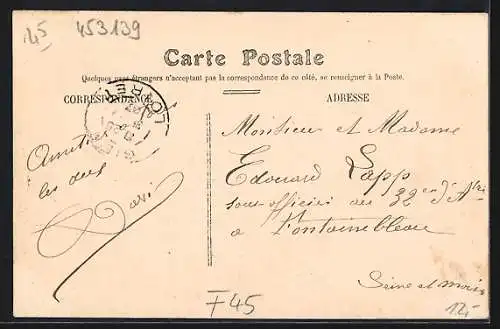 45 453139
Carte Postale
Quelques pays étrangers n'acceptent pas la correspondance de ce côté, se renseigner à la Poste.
CORRESPONDANCE
ADRESSE
LOIRET
Amitiés
les deux
Monsieur et Madame
Edouard Lapp
sous-officier au 32e d'Atrie
à Fontainebleau
Seine et Marne
F45
12,-